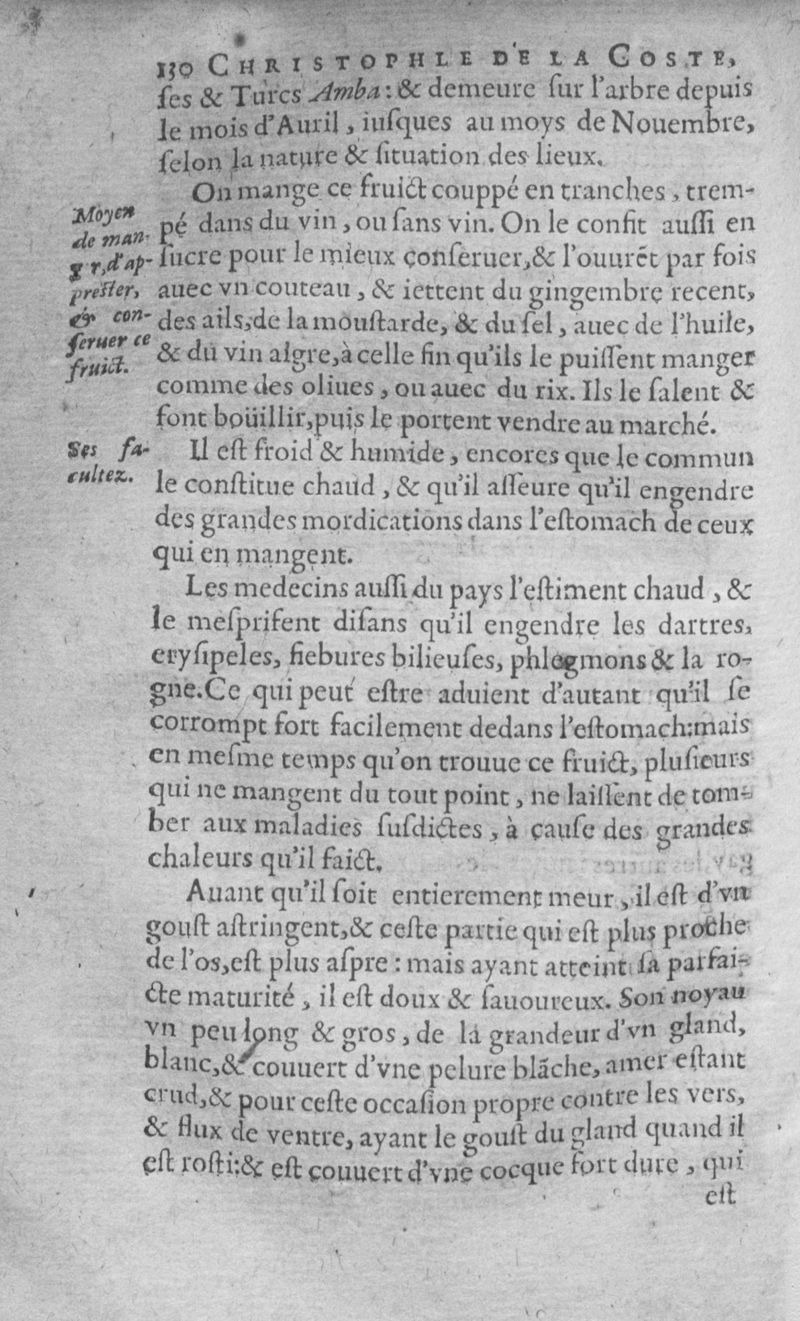 130 CHRISTOPHLE DE LA COSTE,
ſes & Turcs Amba : & demeure ſur l'arbre depuis
le mois d'Auril, iuſques au moys de Nouembre,
ſelon la nature & ſituation des lieux.
On mange ce fruict couppé en tranches, trem-
pé dans du vin, ou ſans vin. On le confit auſſi en
ſucre pour le mieux conſeruer, & l'ouurēt par fois
auec vn couteau, & iettent du gingembre recent,
des ails, de la mouſtarde, & du ſel, auec de l'huile,
& du vin aigre, à celle fin qu'ils le puiſſent manger
comme des oliues, ou auec du rix. Ils le ſalent &
font boüillir, puis le portent vendre au marché.
Moyen
de man-
g r, d'ap-
preſter,
& con-
ſeruer ce
fruict.
Il eſt froid & humide, encores que le commun
le conſtitue chaud, & qu'il aſſeure qu'il engendre
des grandes mordications dans l'eſtomach de ceux
qui en mangent.
Ses fa-
cultez.
Les medecins auſſi du pays l'eſtiment chaud, &
le meſpriſent diſans qu'il engendre les dartres,
eryſipeles, fiebures bilieuſes, phlegmons & la ro-
gne. Ce qui peut eſtre aduient d'autant qu'il ſe
corrompt fort facilement dedans l'eſtomach: mais
en meſme temps qu'on trouue ce fruict, pluſieurs
qui ne mangent du tout point, ne laiſſent de tom-
ber aux maladies ſuſdictes, à cauſe des grandes
chaleurs qu'il faict.
Auant qu'il ſoit entierement meur, il eſt d'vn
gouſt aſtringent, & ceſte partie qui eſt plus proche
de l'os, eſt plus aſpre : mais ayant atteint ſa parfai-
cte maturité, il eſt doux & ſauoureux. Son noyau
vn peu long & gros, de la grandeur d'vn gland,
blanc, & couuert d'vne pelure blāche, amer eſtant
crud, & pour ceſte occaſion propre contre les vers,
& flux de ventre, ayant le gouſt du gland quand il
eſt roſti: & eſt couuert d'vne cocque fort dure, qui
eſt